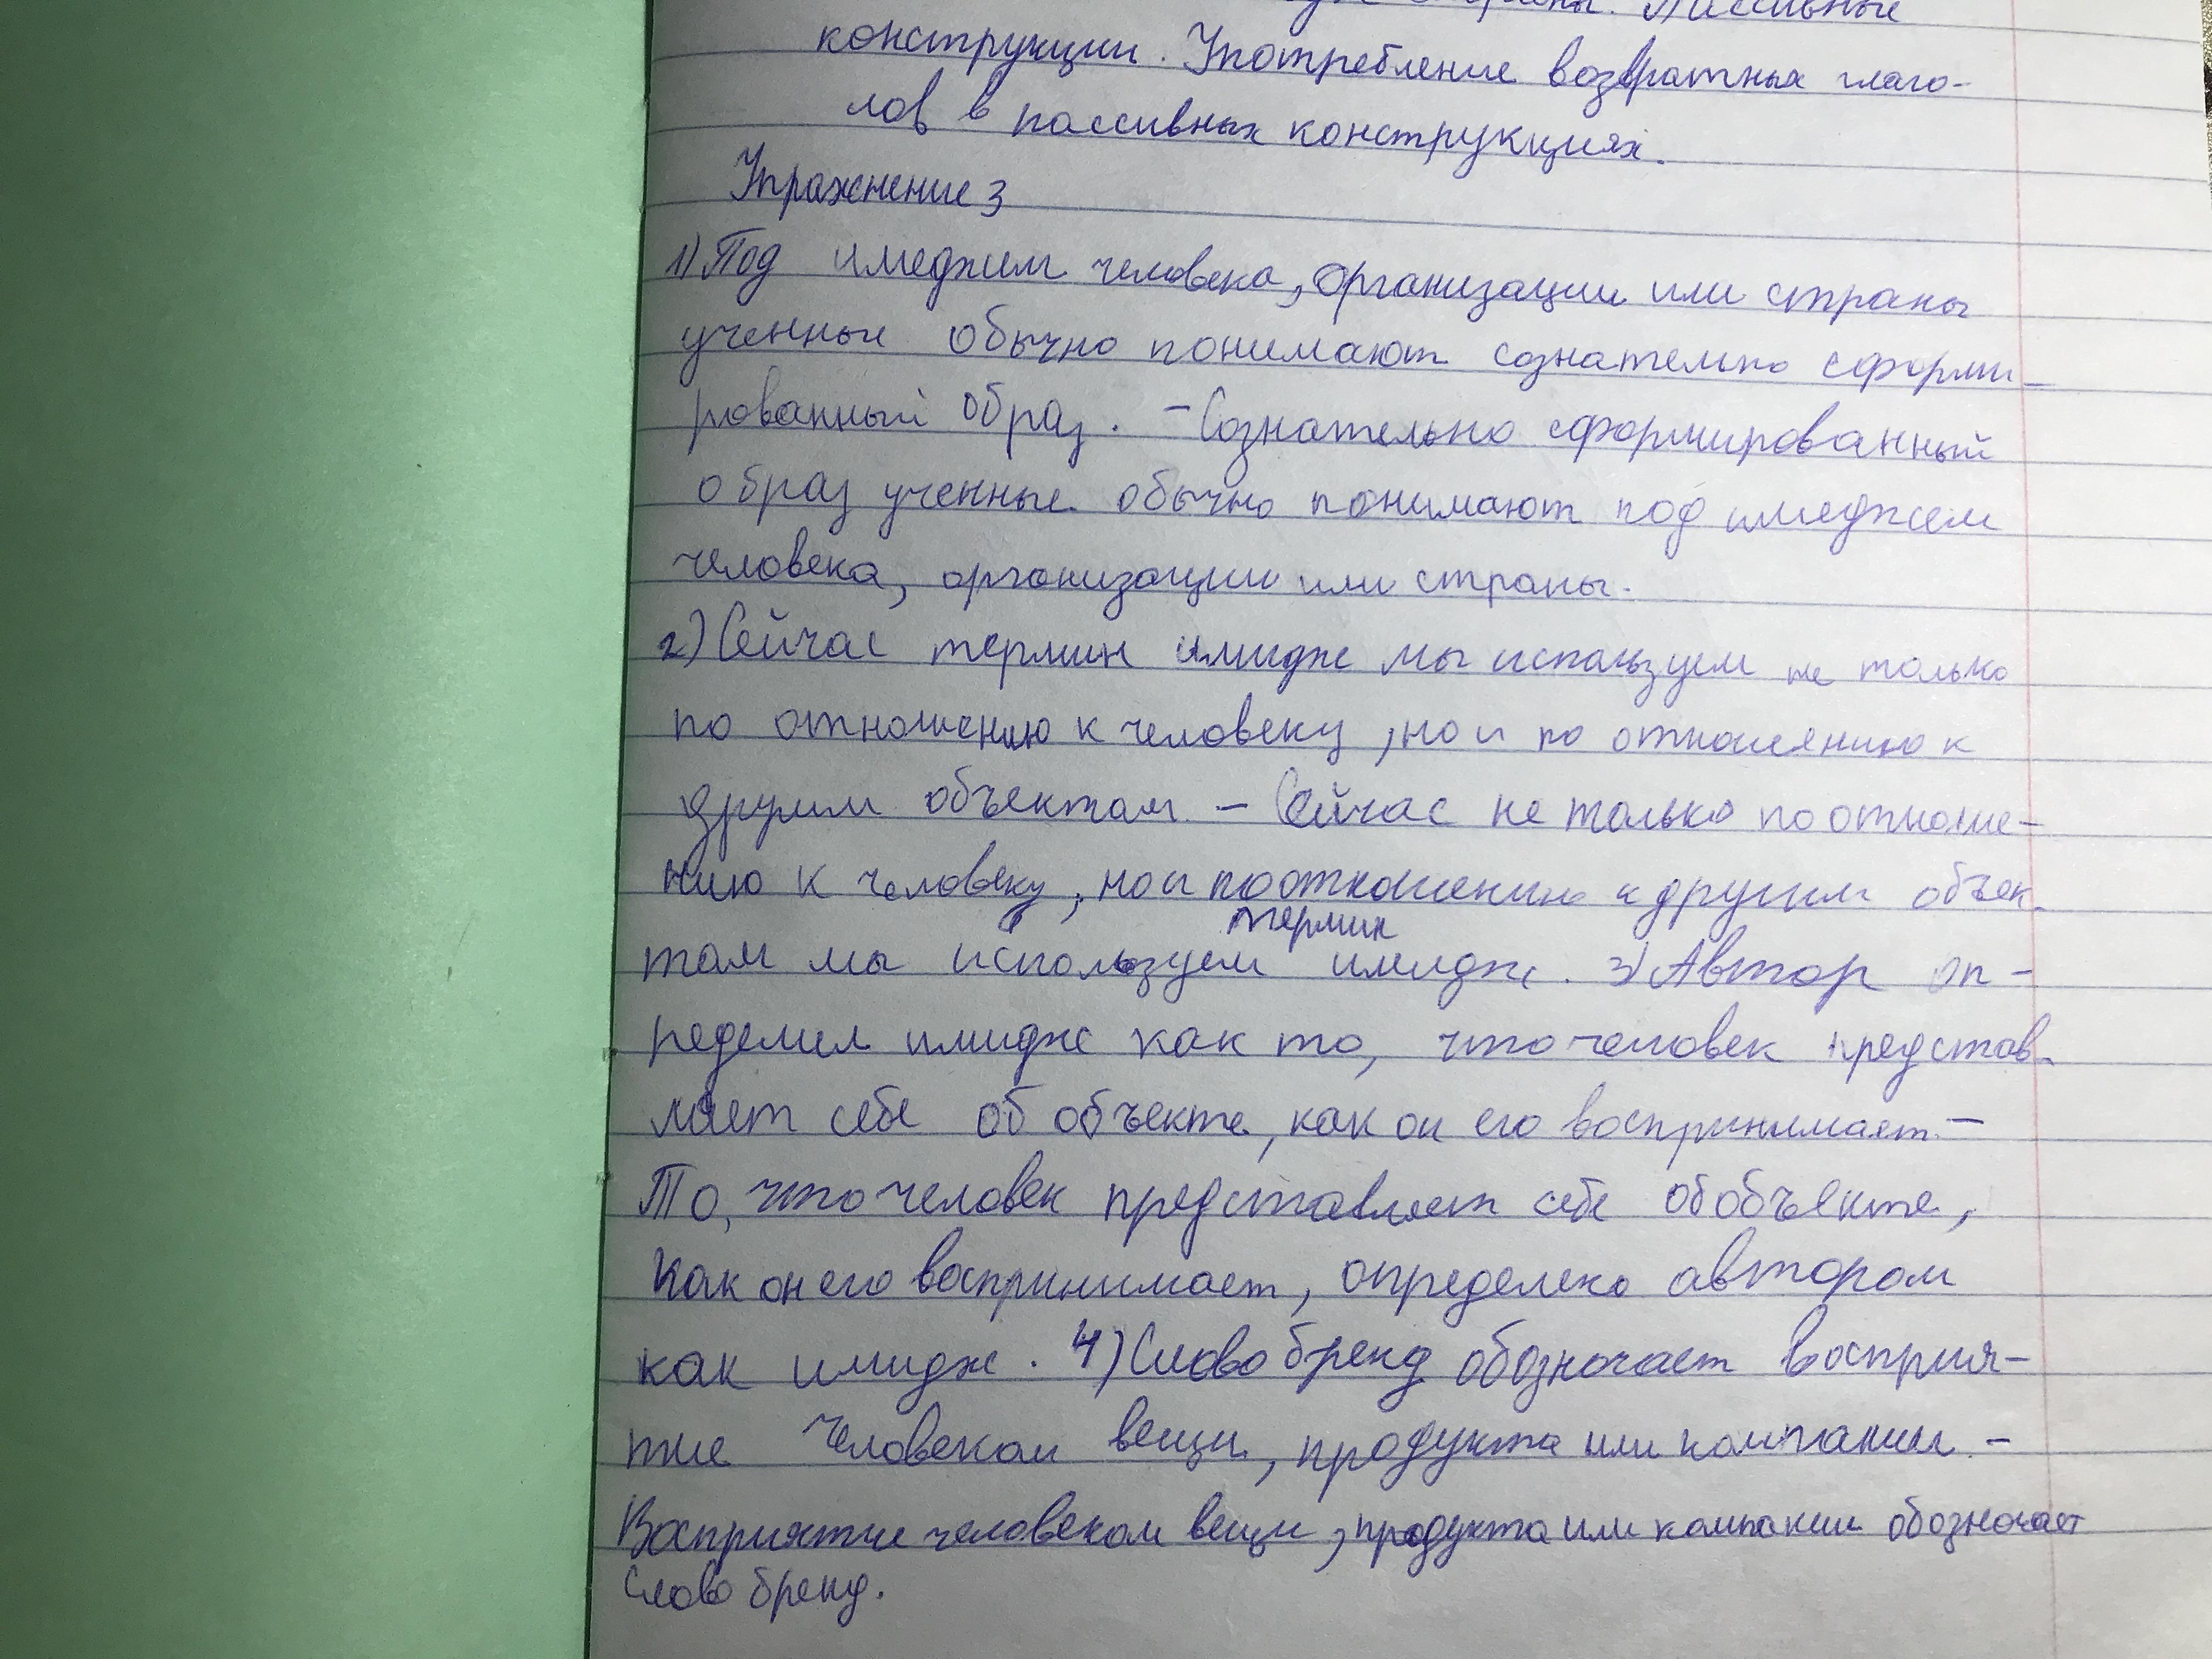 Пассивные
конструкции. Употребление возвратных глаго-
лов в пассивных конструкциях.
Упражнение 3
1) Под имеджем человека, организации или страны
ученные обычно понимают сознательно сформи-
рованный образ. - Сознательно сформированный
образ ученные обычно понимают под имеджем
человека, организации или страны.
2) Сейчас термин имидж мы используем не только
по отношению к человеку, но и по отношению к
другим объектам - Сейчас не только по отноше-
нию к человеку, но и по отношению к другим объек-
термин
там мы используем имидж. 3) Автор оп-
ределил имидж как то, что человек представ-
ляет себе об объекте, как он его воспринимает -
То, что человек представляет себе об объекте,
как он его воспринимает, определено автором
как имидж. 4) Слово бренд обозначает восприя-
тие человеком вещи, продукта или компании -
Восприятие человеком вещи, продукта или компании обозначает
слово бренд.